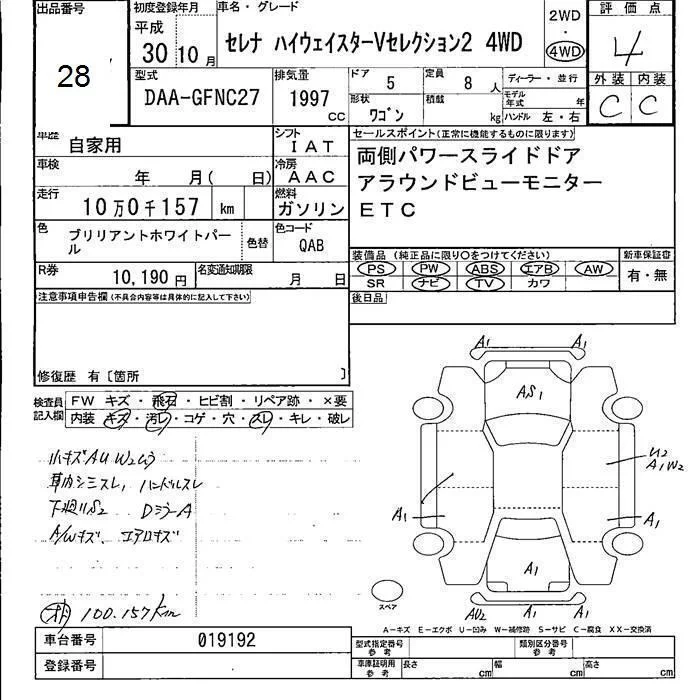 出品番号
28
初度登録年月
平成
30 10 月
車名・グレード
セレナ ハイウェイスターVセレクション2 4WD
2WD
・
4WD
評価点
4
外装 内装
C C
型式
DAA-GFNC27
排気量
1997 CC
ドア 5
定員 8 人
ディーラー・並行
形状 ワゴン
積載 kg
モデル年式 年
ハンドル 左・右
車歴 自家用
シフト IAT
車検 年 月( 日)
冷房 AAC
走行 10万0千157 km
燃料 ガソリン
色 ブリリアントホワイトパール
色替
色コード QAB
R券 10,190 円
名変通知期限 月 日
セールスポイント(正常に機能するものに限ります)
両側パワースライドドア
アラウンドビューモニター
ETC
装備品 (純正品に限り○をつけてください)
新車保証書
PS PW ABS エアB AW
有・無
SR ナビ TV カワ
後日品
注意事項申告欄(不具合内容等は具体的に記入して下さい)
修復歴 有〔箇所 〕
検査員記入欄
FW キズ・飛石・ヒビ割・リペア跡・×要
内装・キズ・汚レ・コゲ・穴・スレ・キレ・破レ
小キズAU W2ムラ
車内シミスレ, ハンドルスレ
下廻りS2 DミラーA
A/Wキズ. エアロキズ
100.157Km
A1 A1
AS1
U2
A1,W2
A1
A1
A1
AU2 A1 A1
スペア
A-キズ E-エクボ U-凹み W-補修跡 S-サビ C-腐食 XX-交換済
車台番号 019192
登録番号
型式指定番号 参考
類別区分番号 参考
車庫証明用 参考
長さ cm
幅 cm
高さ cm